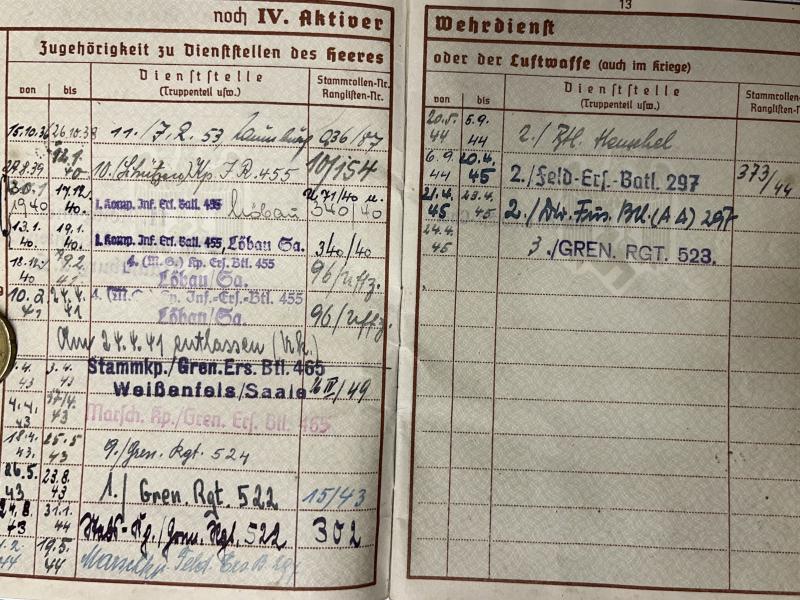 noch IV. Aktiver
Zugehörigkeit zu Dienststellen des Heeres
von
bis
Dienststelle
(Truppenteil usw.)
Stammrollen-Nr.
Ranglisten-Nr.
15.10.38 26.10.38 11./J.R. 53, 936/87
28.8.39 12.1. 40 10. (Schützen) Kp. J.R. 455 10/154
20.1 1940 17.12. 40. 1. Komp. Inf. Ers. Batl. 455 Löbau 340/40
13.1. 40. 19.1. 40. 1. Komp. Inf. Ers. Batl. 455, Löbau Sa. 340/40
18.12. 40 9.2. 4. (M.G.) Kp. Ers. Btl. 455
Löbau/Sa. 96/Uffz.
10.2 41 24.4. 41 4. (M.G.) Kp. Inf.-Ers.-Btl. 455
Löbau/Sa. 96/Uffz.
Am 24.4.41 entlassen
.4. 43 3.4. 43 Stammkp./Gren.Ers. Btl. 465
Weißenfels/Saale 49
4.4. 43 17/4. 43 Marsch. Kp./Gren. Ers. Btl. 465
18.4. 43. 25.5 43 9./Gren. Rgt. 524
26.5. 43 23.8. 43 1./Gren. Rgt. 522 15/43
24.8. 43 31.1. 44 Stabs-Kp./Gren. Rgt. 522 302
1.2. 44 19.5. 44 Feld. Ers. B.
13
Wehrdienst
oder der Luftwaffe (auch im Kriege)
von
bis
Dienststelle
(Truppenteil usw.)
Stammrollen-
Ranglisten-Nr.
20.5. 44 5.9. 44 2./Btl. Henschel
6.9. 44 20.4. 45 2./Feld-Ers.-Batl. 297 373/44
21.4. 45 23.4. 45 2./Div. Füs. Btl. (AA) 297
24.4. 45 3./GREN. RGT. 523.